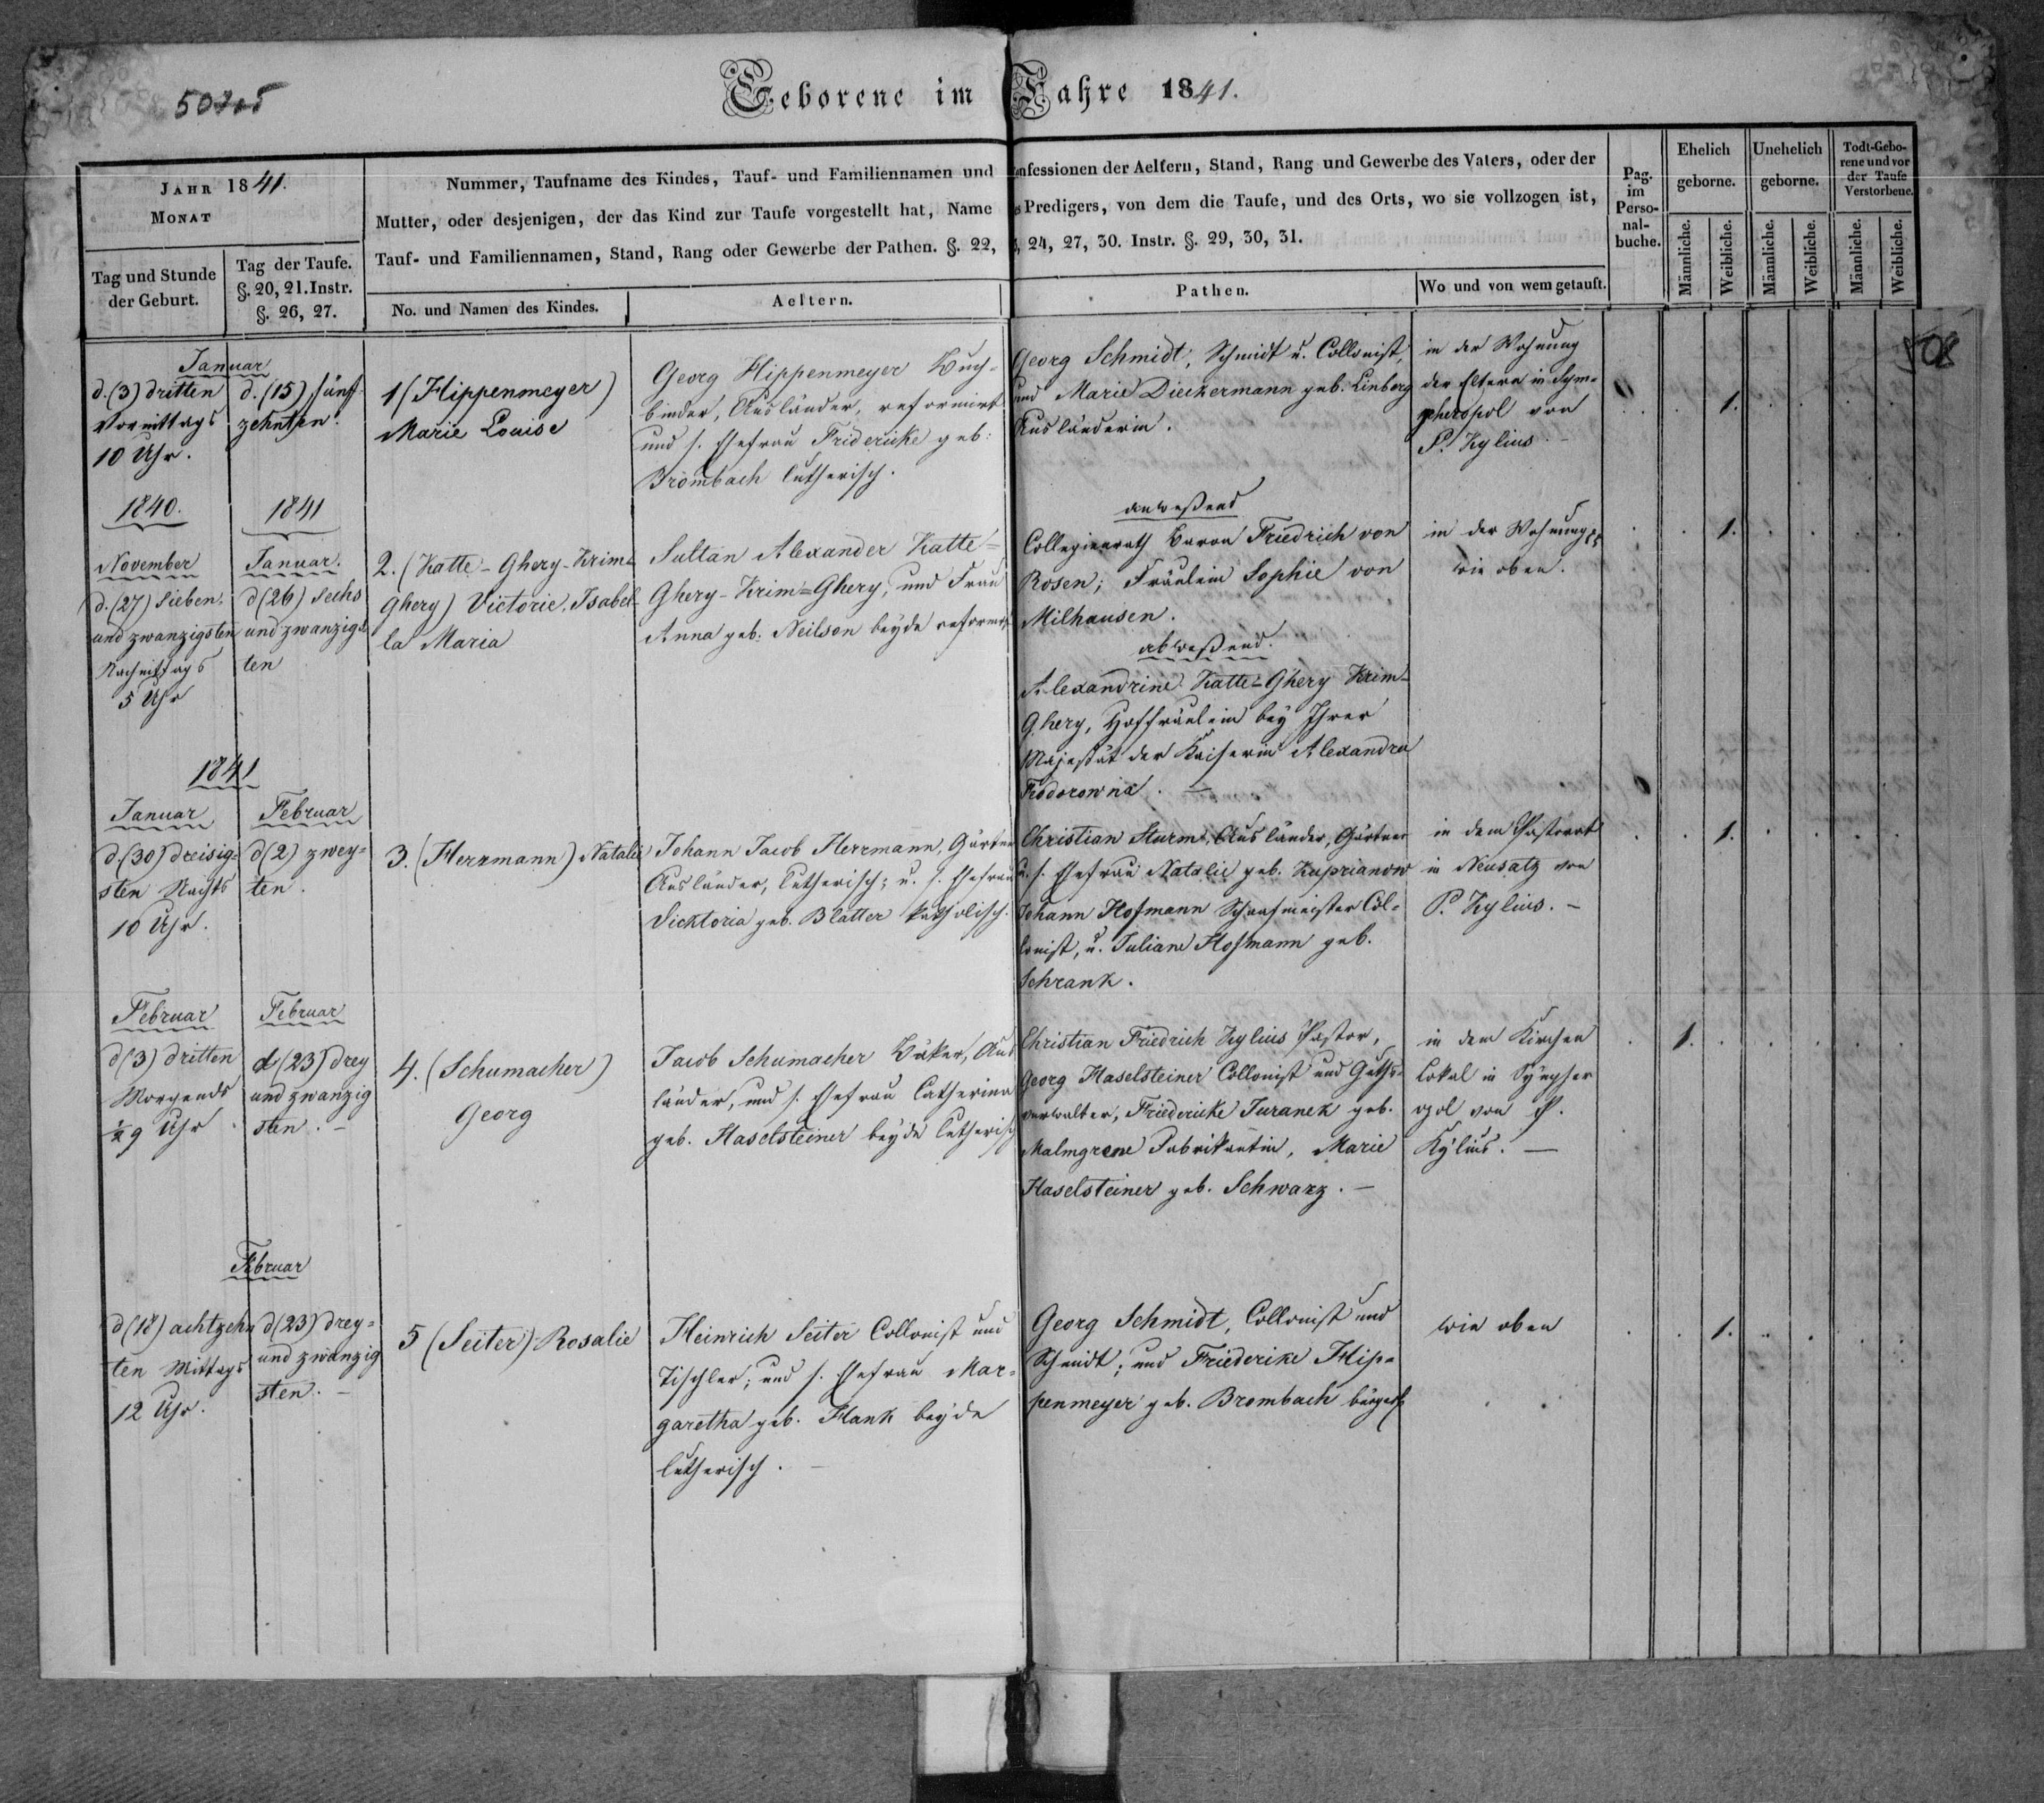 Geborene im Jahre 1841.
JAHR 1841.
MONAT
Tag und Stunde
der Geburt.
Tag der Taufe.
§. 20, 21. Instr.
§. 26, 27.
Nummer, Taufname des Kindes, Tauf- und Familiennamen und
Mutter, oder desjenigen, der das Kind zur Taufe vorgestellt hat, Name
Tauf- und Familiennamen, Stand, Rang oder Gewerbe der Pathen. §. 22,
No. und Namen des Kindes.
Aeltern.
nfessionen der Aeltern, Stand, Rang und Gewerbe des Vaters, oder der
s Predigers, von dem die Taufe, und des Orts, wo sie vollzogen ist,
, 24, 27, 30. Instr. §. 29, 30, 31.
Pathen.
Wo und von wem getauft.
Pag.
im
Perso-
nal-
buche.
Ehelich
geborne.
Unehelich
geborne.
Todt-Gebo-
rene und vor
der Taufe
Verstorbene.
Männliche.
Weibliche.
Männliche.
Weibliche.
Männliche.
Weibliche.
508
Januar
d. (3) dritten
Vormittags
10 Uhr.
d. (15) fünf
zehnten.
1 (Hippenmeyer)
Marie Louise
Georg Hippenmeyer Buch-
binder, Ausländer, reformirt
und s. Ehefrau Fridericke geb:
Brombach lutherisch.
Georg Schmidt, Schmidt u. Collonist,
und Marie Dieckermann geb. Linberg
Ausländerin.
in der Wohnung
der Eltern in Sym-
pheropol von
P. Kylius.
1.
1840.
November
d. (27) sieben
und zwanzigsten
Nachmittags
5 Uhr
1841
Januar.
d (26) sechs
und zwanzigs
ten
2. (Katte-Ghery-Krim-
Ghery) Victorie, Isabel-
la Maria
Sultan Alexander Katte-
Ghery-Krim-Ghery, und Frau
Anna geb. Neilson beyde reformirt
anweßend
Collegienrath Baron Friedrich von
Rosen; Fräulein Sophie von
Milhausen.
abweßend.
Alexandrine Katte-Ghery Krim-
Ghery, Hoffräulein bey Ihrer
Majestät der Kaiserin Alexandra
Feodorowna.
in der Wohnung
wie oben.
1.
1841
Januar
d. (30) dreisig-
sten Nachts
10 Uhr.
Februar
d (2) zwey-
ten.
3. (Herrmann) Natalie
Johann Jacob Herrmann, Gärtner
Ausländer, lutherisch; u. s. Ehefrau
Vicktoria geb. Blatter katholisch.
Christian Sturm, Ausländer, Gärtner
u. s. Ehefrau Natalie geb. Kuprianow
Johann Hofmann Schafmeister Col-
lonist, u. Juliane Hofmann geb.
Schrank.
in dem Pastorat
in Neusatz von
P. Kylius. –
1.
Februar
d (3) dritten
Morgends
½ 9 Uhr
Februar
d (23) drey
und zwanzig
sten. –
4. (Schumacher)
Georg
Jacob Schumacher Bäker, Aus
länder, und s. Ehefrau Catherina
geb. Haselsteiner beyde lutherisch
Christian Friedrich Kylius Pastor,
Georg Haselsteiner Collonist und Guths-
verwalter, Friedericke Juranek geb.
Malmgrene Fabrikantin, Marie
Haselsteiner geb. Schwarz. –
in dem Kirchen
Lokal in Sympher
opol von P.
Kylius. –
1.
Februar
d (18) achtzehn
ten Mittags
12 Uhr.
d (23) drey-
und zwanzig
sten. –
5 (Seiter) Rosalie
Heinrich Seiter Collonist und
Tischler; und s. Ehefrau Mar-
garetha geb. Hank beyde
lutherisch. –
Georg Schmidt, Collonist und
Schmidt; und Friederike Hip-
penmeyer geb. Brombach
wie oben
1.